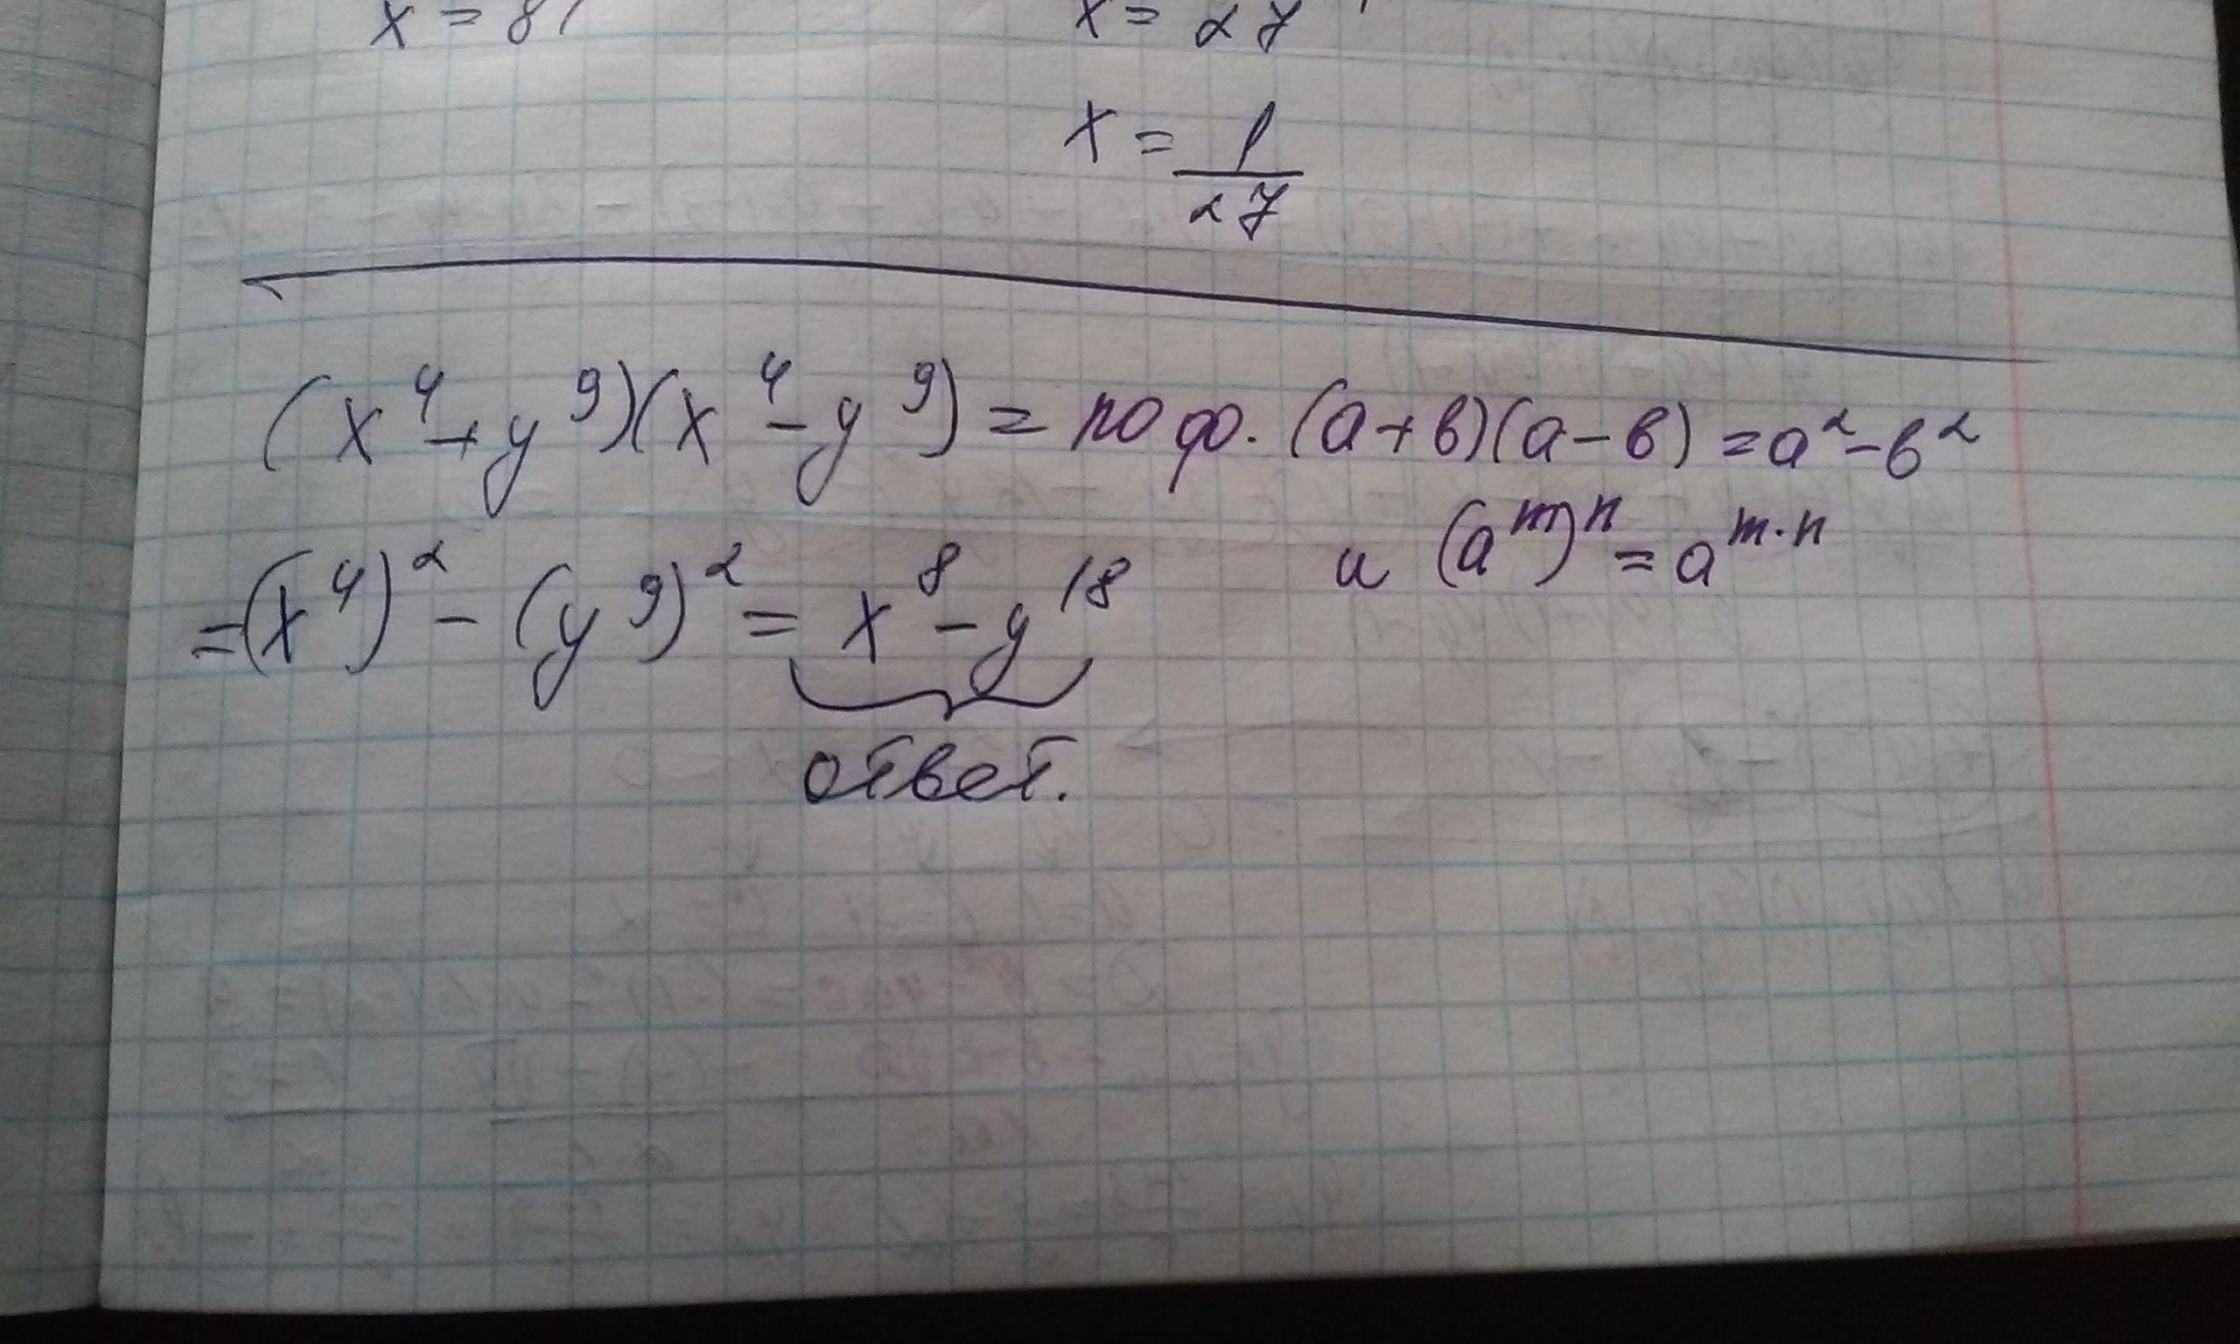 x = 81
x = 27
x = 1/27
(x⁴ + y⁹)(x⁴ - y⁹) = по ф. (а + в)(а - в) = а² - в²
и (aᵐ)ⁿ = aᵐ·ⁿ
= (x⁴)² - (y⁹)² = x⁸ - y¹⁸
ответ.